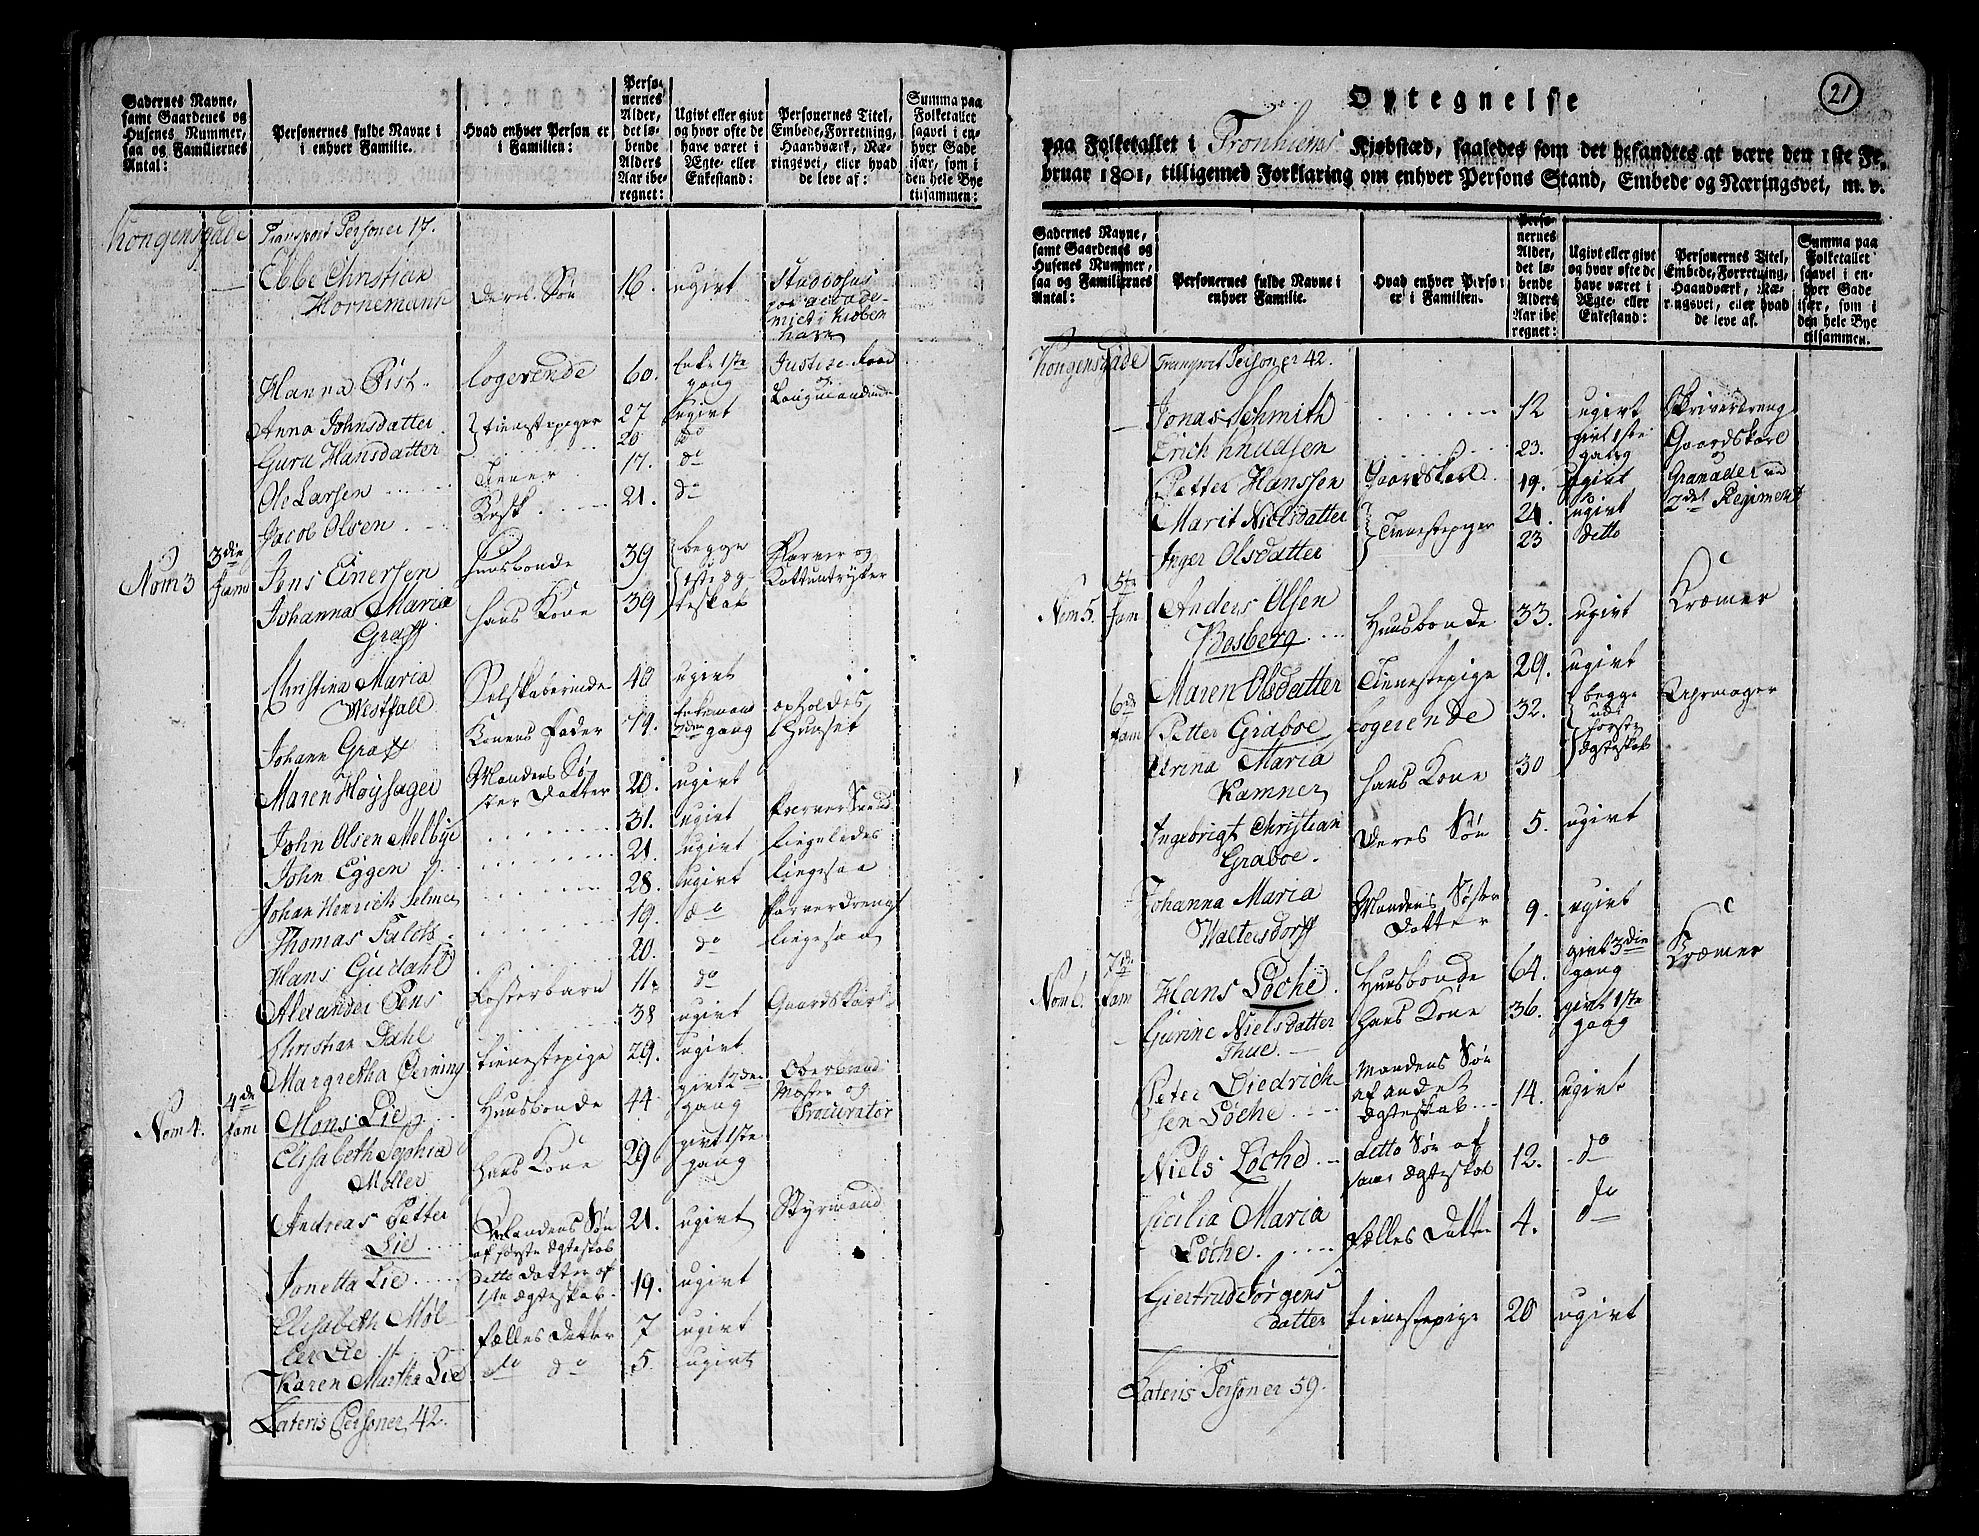 Gadernes Navne,
samt Gaardenes og
Husenes Nummer,
saa og Familiernes
Antal:
Personernes fulde Navne i
enhver Familie.
Hvad enhver Person er
i Familien:
Perso-
nernes
Alder,
det lø-
bende
Alders
Aar ibe-
regnet:
Ugivt eller givt
og hvor ofte de
have været i
Ægte- eller
Enkestand:
Personernes Titel,
Embede, Forretning,
Haandværk, Næ-
ringsvei, eller hvad
de leve af:
Summa paa
Folketallet
saavel i en-
hver Gade
især, som i
den hele Bye
tilsammen:
Kongensgade Transport Personer 17.
Ebbe Christian
Hornemann Deris Søn 16. ugivt Studiosus
Hanna Pist. logerende 60. Enke 1ste gang Justice Raad
Anna Johnsdatter tienestepiger 27 ugivt
Guru Hansdatter 20 do
Ole Larsen Tiener 17. do
Jacob Olsen Kusk 21. do
Nom 3 3die fam Jens Einersen Huusbonde 39 begge Farver og
Johanna Maria Hans Kone 39 1ste Æg-teskab Kattuntrykker
Graff
Christina Maria Selskaberinde 48 ugivt
Westfall
Johann Graff Konens Fader 79. Enkemand gang opholdes i Huuset
Maren Høysager Mandens Sø-
ster Datter 20. ugivt
John Olsen Melbye 31. ugivt Farver Svend
John Eggen 21. ugivt ligeledes
Johan Henrich Selmer 28. ugivt ligesaa
Thomas Falch 19. do Farverdreng
Hans Gudahl 20. do ligesaa
Alexander Jens Fosterbarn 11. do
Christian Dahl 38 ugivt Gaardskarl
Margretha tienestepige 29. ugivt
Nom 4. 4de fam Mons Lie Huusbonde 44 givt 2den gang Oberbrand Mester og Procurator
Elisabeth Sophia
Møller Hans Kone 29 givt 1ste gang
Andreas Petter
Lie Mandens Søn
af første Ægteskab 21. ugivt Styrmand
Jonetta Lie ditto Datter af
1ste Ægteskab. 19. ugivt
Elisabeth Møl-
ler Lie fælles Datter 7 ugivt
Karen Martha Lie do do 5. ugivt
Lateris Personer 42.
21
Optegnelse
paa Folketallet i Tronhiems Kjøbstæd, saaledes som det befandtes at være den 1ste Fe-
bruar 1801, tilligemed Forklaring om enhver Persons Stand, Embede og Næringsvei, m. v.
Gadernes Navne,
samt Gaardenes og
Husenes Nummer,
saa og Familiernes
Antal:
Personernes fulde Navne i
enhver Familie.
Hvad enhver Person
er i Familien.
Perso-
nernes
Alder,
det lø-
bende
Alders
Aar ibe-
regnet:
Ugivt eller givt
og hvor ofte de
have været i
Ægte- eller
Enkestand:
Personernes Titel,
Embede, Forretning,
Haandværk, Næ-
ringsvei, eller hvad
de leve af.
Summa paa
Folketallet
saavel i en-
hver Gade
især, som i
den hele Bye
tilsammen.
Kongensgade Transport Personer 42.
Jonas Schmith 12 ugivt Skriverdreng
Erich Knudsen 23. givt 1ste gang Gaardskarl
Petter Hanssen Gaardskarl 19. ugivt Granadeer ve
Marit Nielsdatter Tienestepiger 21. ugivt 2det Regiment
Inger Olsdatter 23 ditto
Nom 5. 5te fam Anders Olsen
Bosberg Huusbonde 33. ugivt Kræmer
Maren Olsdatter Tienestepige 29. ugivt
6te fam Petter Graboe Logerende 32. begge udi første Ægteskab Uhrmager
Maria
Kamner Hans Kone 30
Ingebrigt Christian
Graboe. Deres Søn 5. ugivt
Johanna Maria
Waltersdorff Mandens Søster
Datter 9. ugivt
Nom 6. 7de fam Hans Løche Huusbonde 64. givt 3die gang Kræmer
Gurine Nielsdatter
Thue. Hans Kone 36. givt 1ste gang
Peter Diedrich-
sen Løche Mandens Søn
af andet
Ægteskab 14. ugivt
Niels Løche ditto Søn af
samme Ægteskab 12. do
Sicilia Maria
Løche. fælles Datter 4. do
Giertrud Jørgens
datter tienestepige 20 ugivt
Lateris Personer 59.